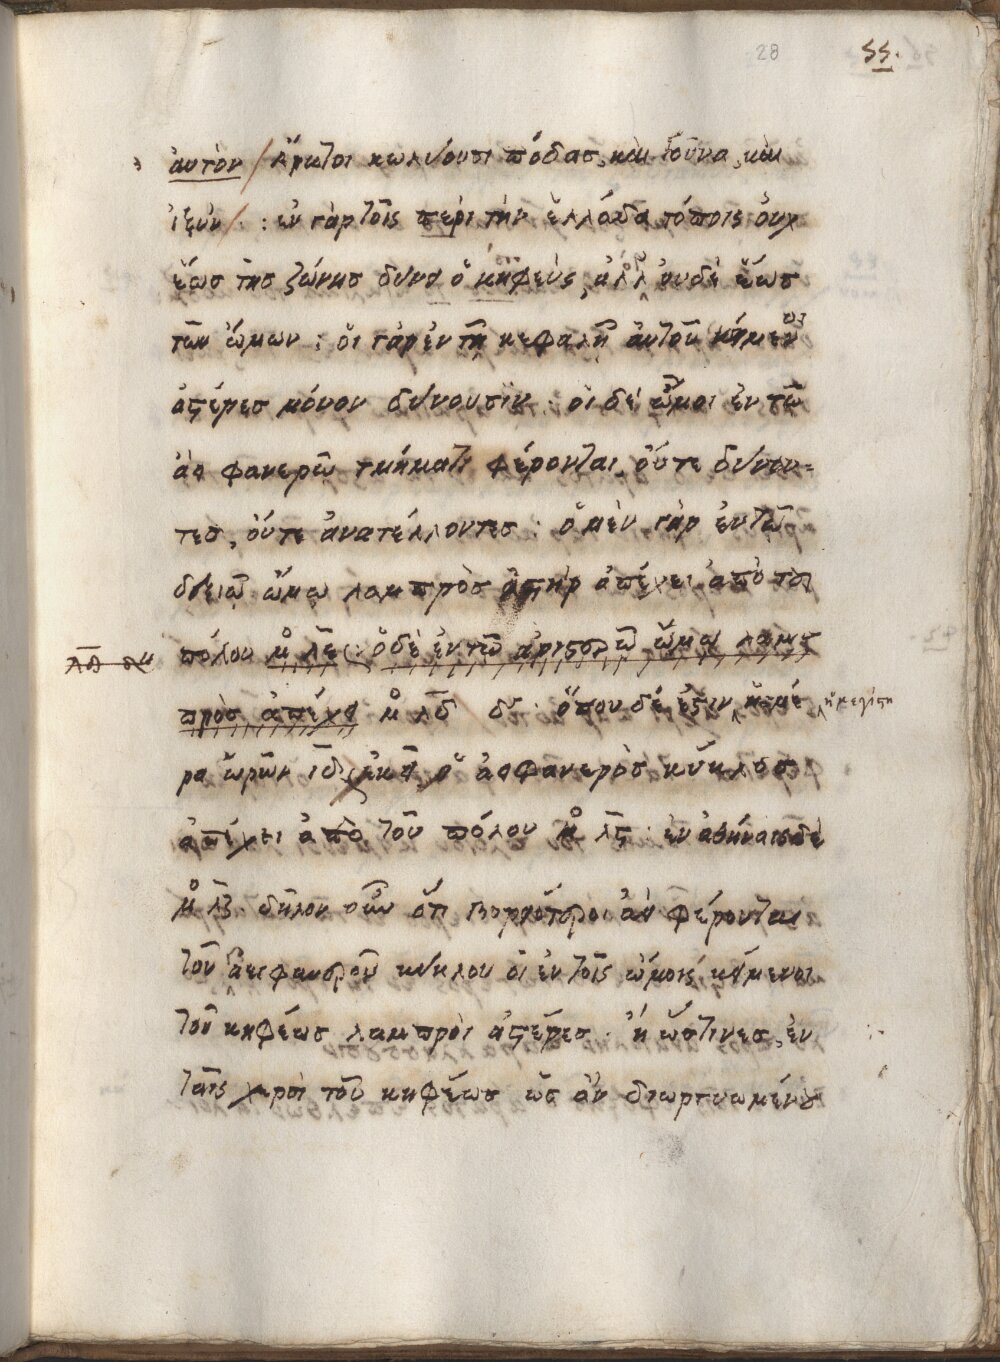 28 55.
ἀυτὸν / Ἄρκτοι κωλύουσι πόδας, καὶ γοῦνα, καὶ
ἰξύν / · : ἐν γὰρ τοῖς περὶ τὴν ἑλλάδα τόποις ὀυχ
ἕως τῆς ζώνης δύνει ὁ κηφεὺς, ἀλλ ὀυδὲ ἕως
τῶν ὤμων : ὁι γὰρ ἐν τῆ κεφαλῆ ἀυτοῦ κείμενοι
ἀστέρες μόνον δύνουσιν : ὁι δὲ ὦμοι ἐν τῶ
ἀεὶ φανερῶ τμήματι φέρονται, ὄυτε δύνον=
τες, ὄυτε ἀνατέλλοντες : ὁ μὲν γὰρ ἐν τῶ
δεξιῶ ὤμω λαμπρὸς ἀστὴρ ἀπέχει ἀπὸ τοῦ
πόλου μ̊ λ̅ε̅ : ὁ δὲ ἐν τῶ ἀριστερῶ ὤμω λαμ
πρὸς ἀπέχει μ̊ λ̅δ̅ · ὅπου δέ ἐστιν ἡμέ ἡ μεγίστη
ρα ὡρῶν ι̅δ̅ ἐκεῖ ὁ ἀεὶ φανερὸς κύκλος
ἀπέχει ἀπὸ τοῦ πόλου μ̊ λ̅ϛ̅ : ἐν ἀθήναις δὲ
μ̊ λ̅ζ̅ · δῆλον οὖν ὅτι βορειότεροι ἀεὶ φέρονται
τοῦ ἀειφανεροῦ κύκλου ὁι ἐν τοῖς ὤμοις κείμενοι
τοῦ κηφέως λαμπροὶ ἀστέρες · ἤ ὥς τινες, ἐν
ταῖς χερσὶ τοῦ κηφέως ὡς ἂν διωργυωμένου